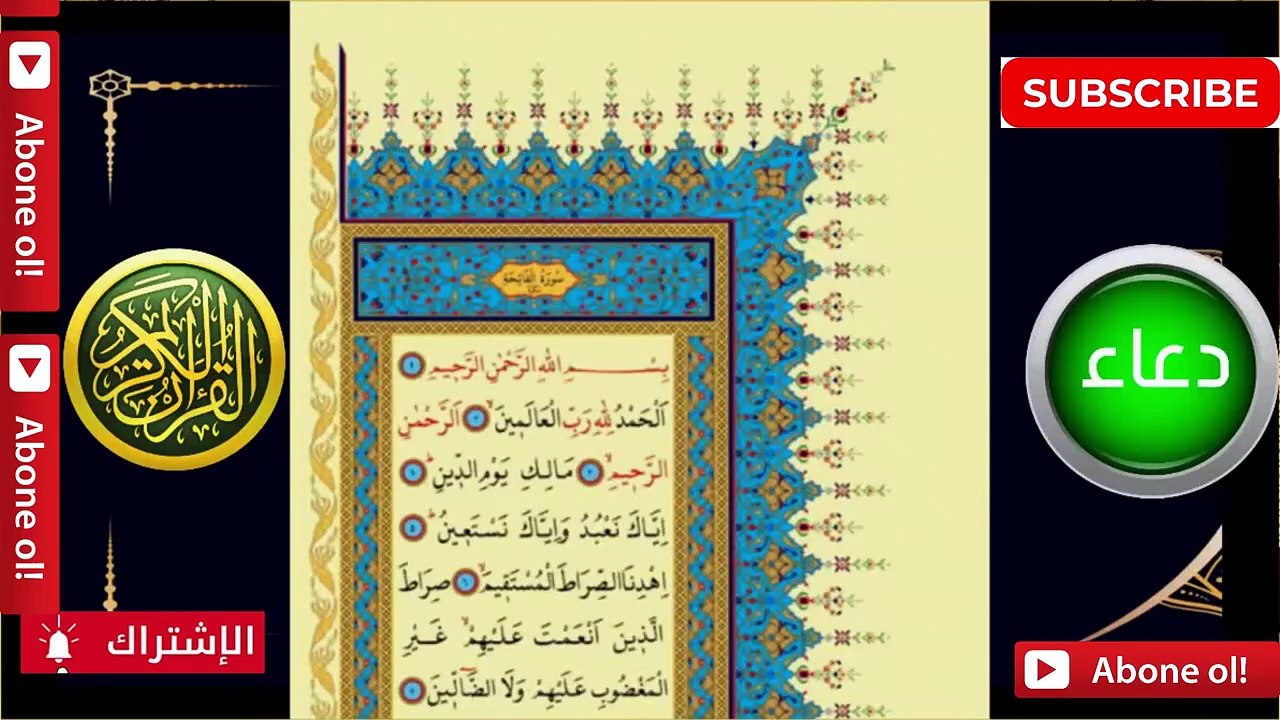 Abone ol!
Abone ol!
القرآن الكريم
الإشتراك
سُورَةُ الْفَاتِحَةِ
بِسْــــــمِ اللّٰهِ الرَّحْمٰنِ الرَّحِيمِ ١
اَلْحَمْدُ لِلّٰهِ رَبِّ الْعَالَمِينَۙ ٢ اَلرَّحْمٰنِ
الرَّحِيمِۙ ٣ مَالِكِ يَوْمِ الدِّينِۜ ٤
اِيَّاكَ نَعْبُدُ وَاِيَّاكَ نَسْتَعِينُۜ ٥
اِهْدِنَا الصِّرَاطَ الْمُسْتَقِيمَۙ ٦ صِرَاطَ
الَّذِينَ اَنْعَمْتَ عَلَيْهِمْۙ غَيْرِ
الْمَغْضُوبِ عَلَيْهِمْ وَلَا الضَّٓالِّينَ ٧
SUBSCRIBE
دعاء
Abone ol!